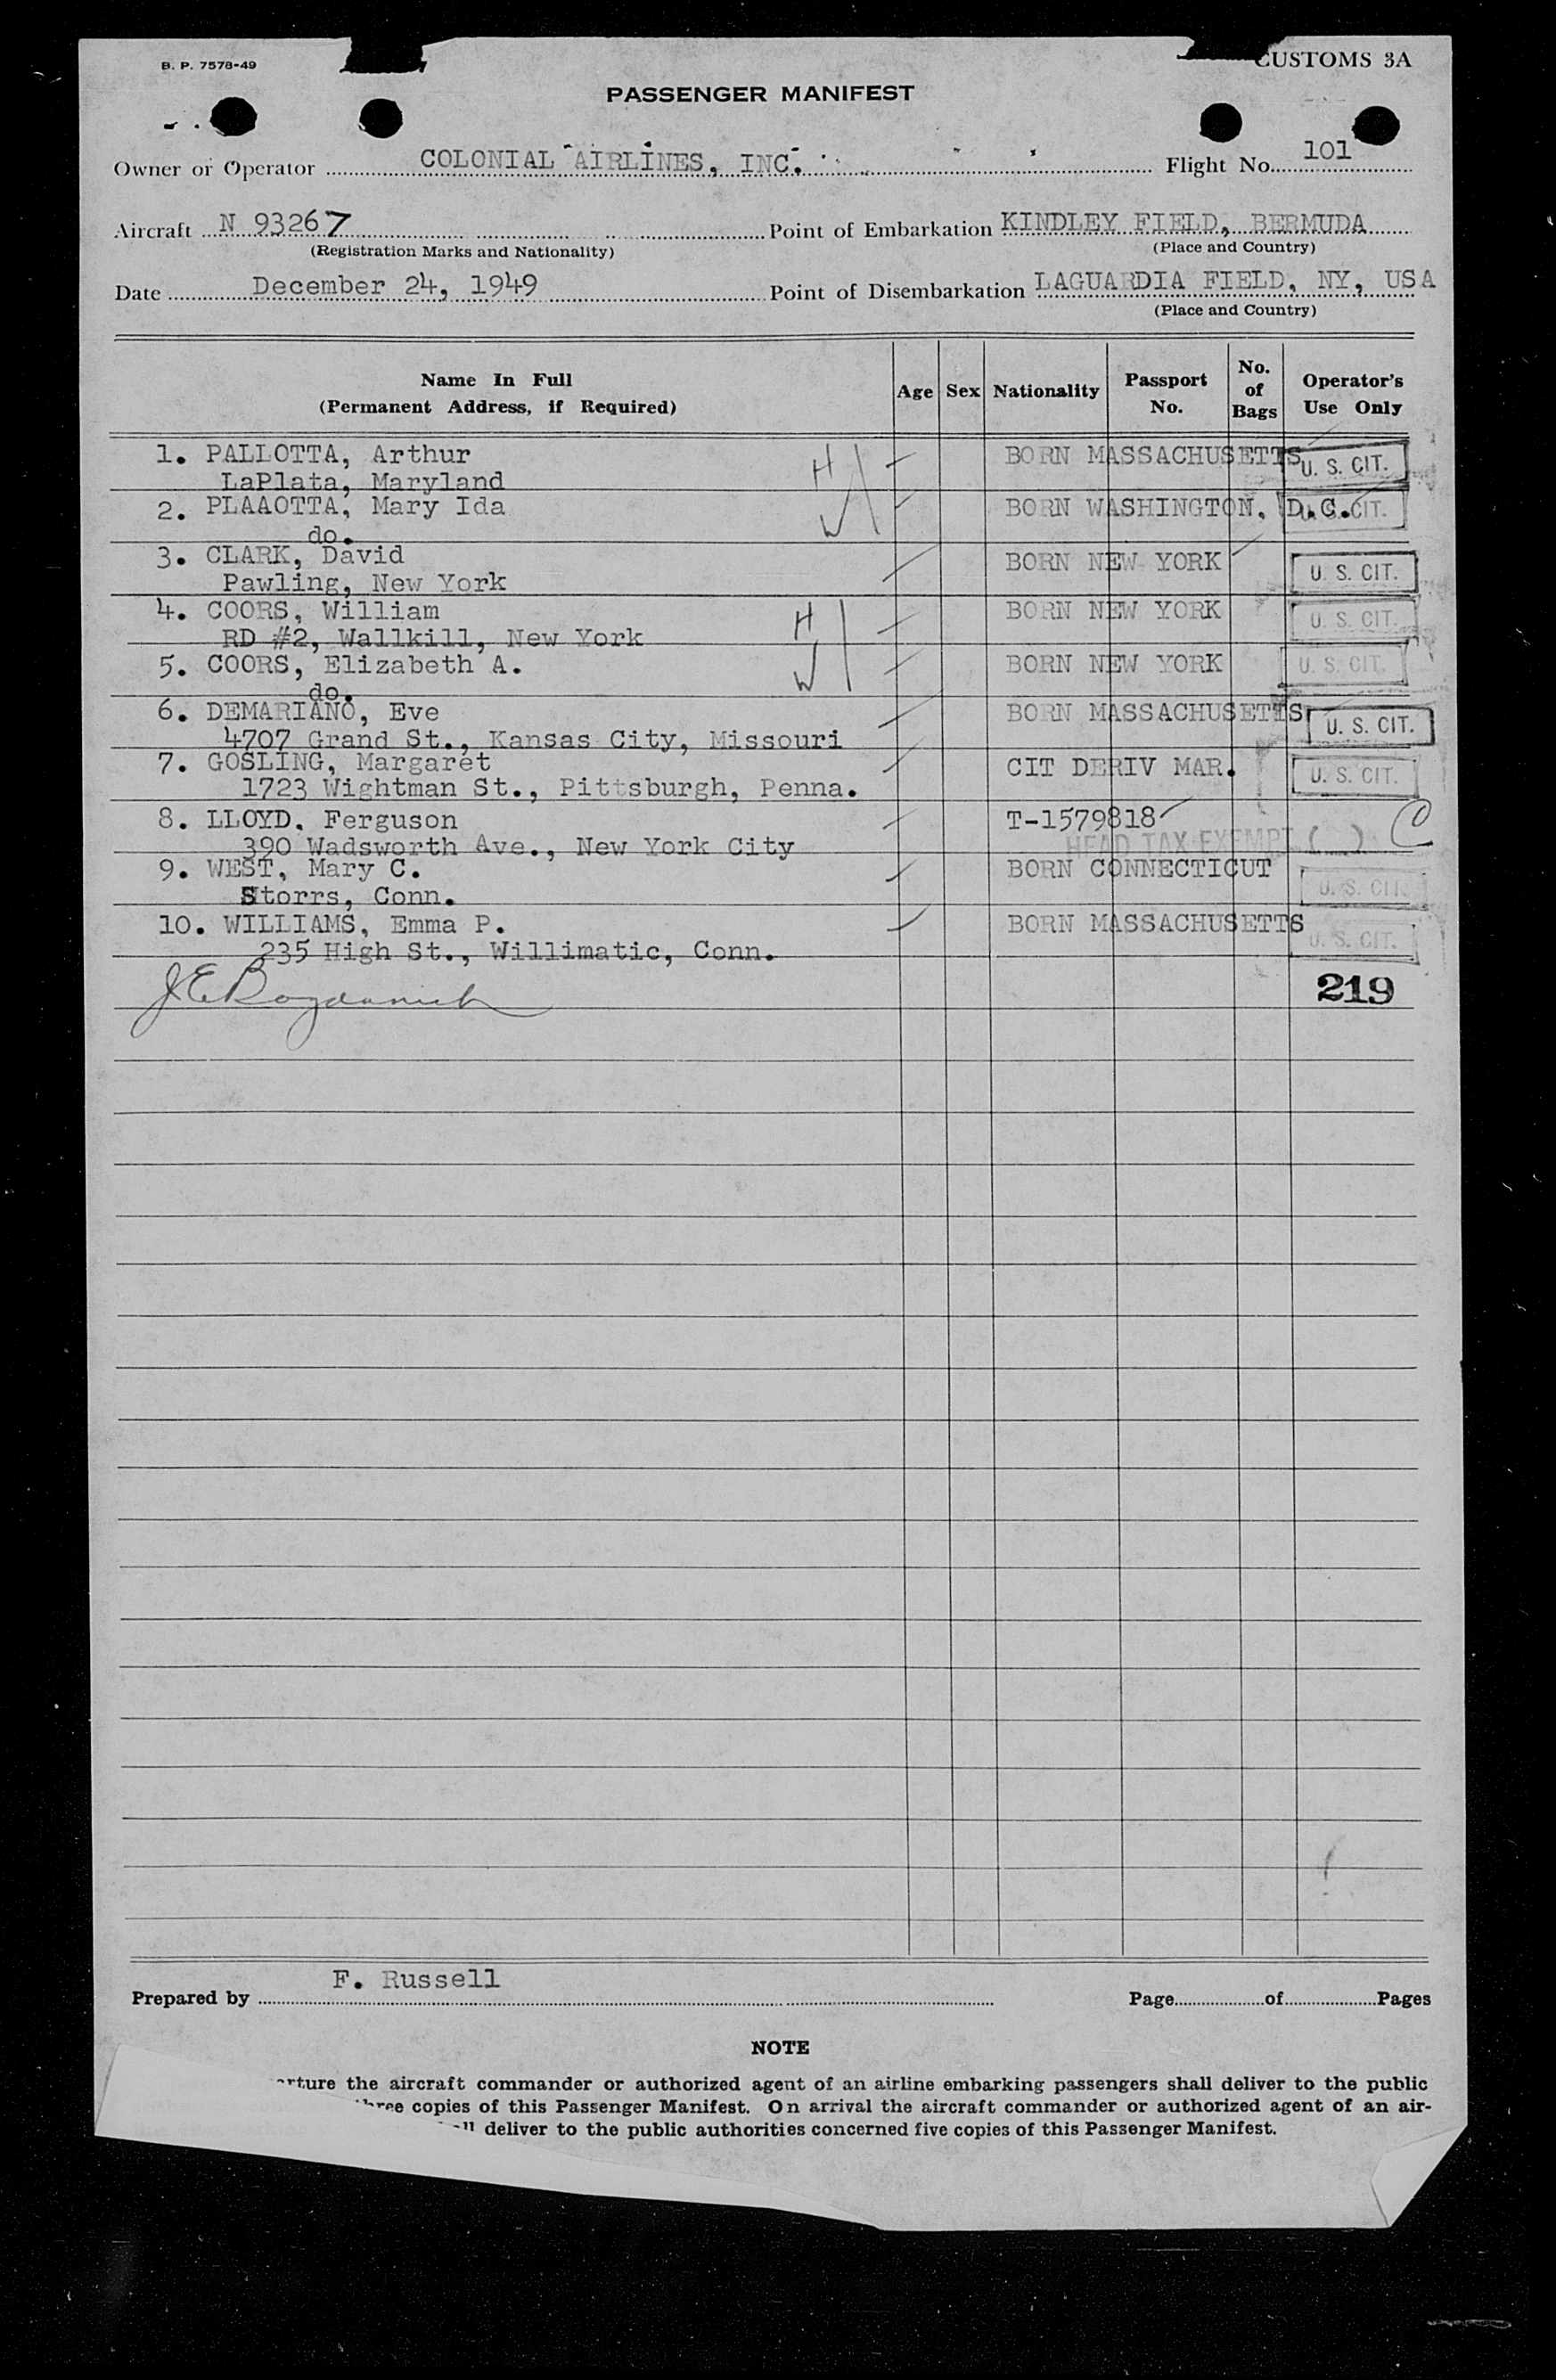 B. P. 7578-49
CUSTOMS 3A
PASSENGER MANIFEST
Owner or Operator COLONIAL AIRLINES, INC. Flight No. 101
Aircraft N 93267 Point of Embarkation KINDLEY FIELD, BERMUDA
(Registration Marks and Nationality) (Place and Country)
Date December 24, 1949 Point of Disembarkation LAGUARDIA FIELD, NY, USA
(Place and Country)
Name In Full
(Permanent Address, if Required)
Age Sex Nationality
Passport
No.
No.
of
Bags
Operator's
Use Only
1. PALLOTTA, Arthur H BORN MASSACHUSETTS U. S. CIT.
LaPlata, Maryland
2. PLAAOTTA, Mary Ida W BORN WASHINGTON, D.C. CIT.
do.
3. CLARK, David BORN NEW YORK U. S. CIT.
Pawling, New York
4. COORS, William H BORN NEW YORK U. S. CIT.
RD #2, Wallkill, New York
5. COORS, Elizabeth A. W BORN NEW YORK U. S. CIT.
do.
6. DEMARIANO, Eve BORN MASSACHUSETTS U. S. CIT.
4707 Grand St., Kansas City, Missouri
7. GOSLING, Margaret CIT DERIV MAR. U. S. CIT.
1723 Wightman St., Pittsburgh, Penna.
8. LLOYD. Ferguson T-1579818 C
390 Wadsworth Ave., New York City HEAD TAX EXEMPT ( )
9. WEST, Mary C. BORN CONNECTICUT U. S. CIT.
Storrs, Conn.
10. WILLIAMS, Emma P. BORN MASSACHUSETTS U. S. CIT.
235 High St., Willimatic, Conn.
219
F. Russell
Prepared by Page of Pages
NOTE
the aircraft commander or authorized agent of an airline embarking passengers shall deliver to the public
copies of this Passenger Manifest. On arrival the aircraft commander or authorized agent of an air-
deliver to the public authorities concerned five copies of this Passenger Manifest.